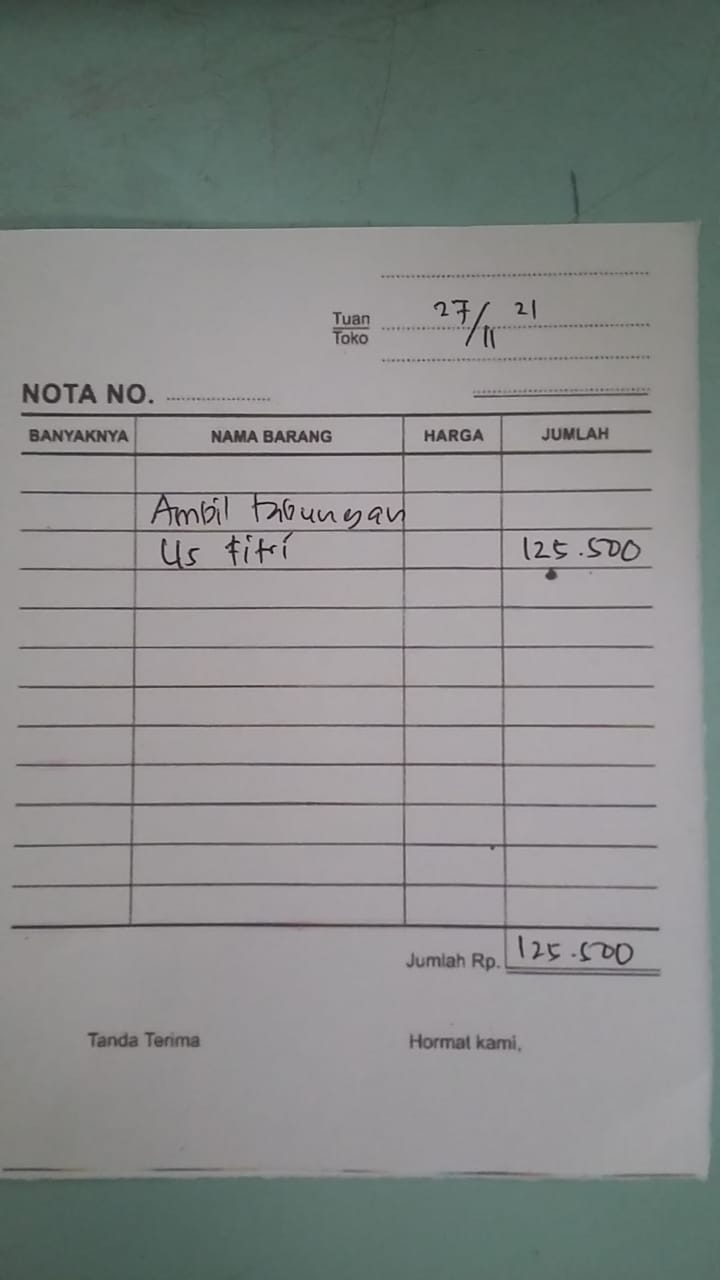 27/11 21
Tuan
Toko
NOTA NO.
BANYAKNYA NAMA BARANG HARGA JUMLAH
Ambil tabungan
Us fitri 125.500
Jumlah Rp. 125.500
Tanda Terima Hormat kami,